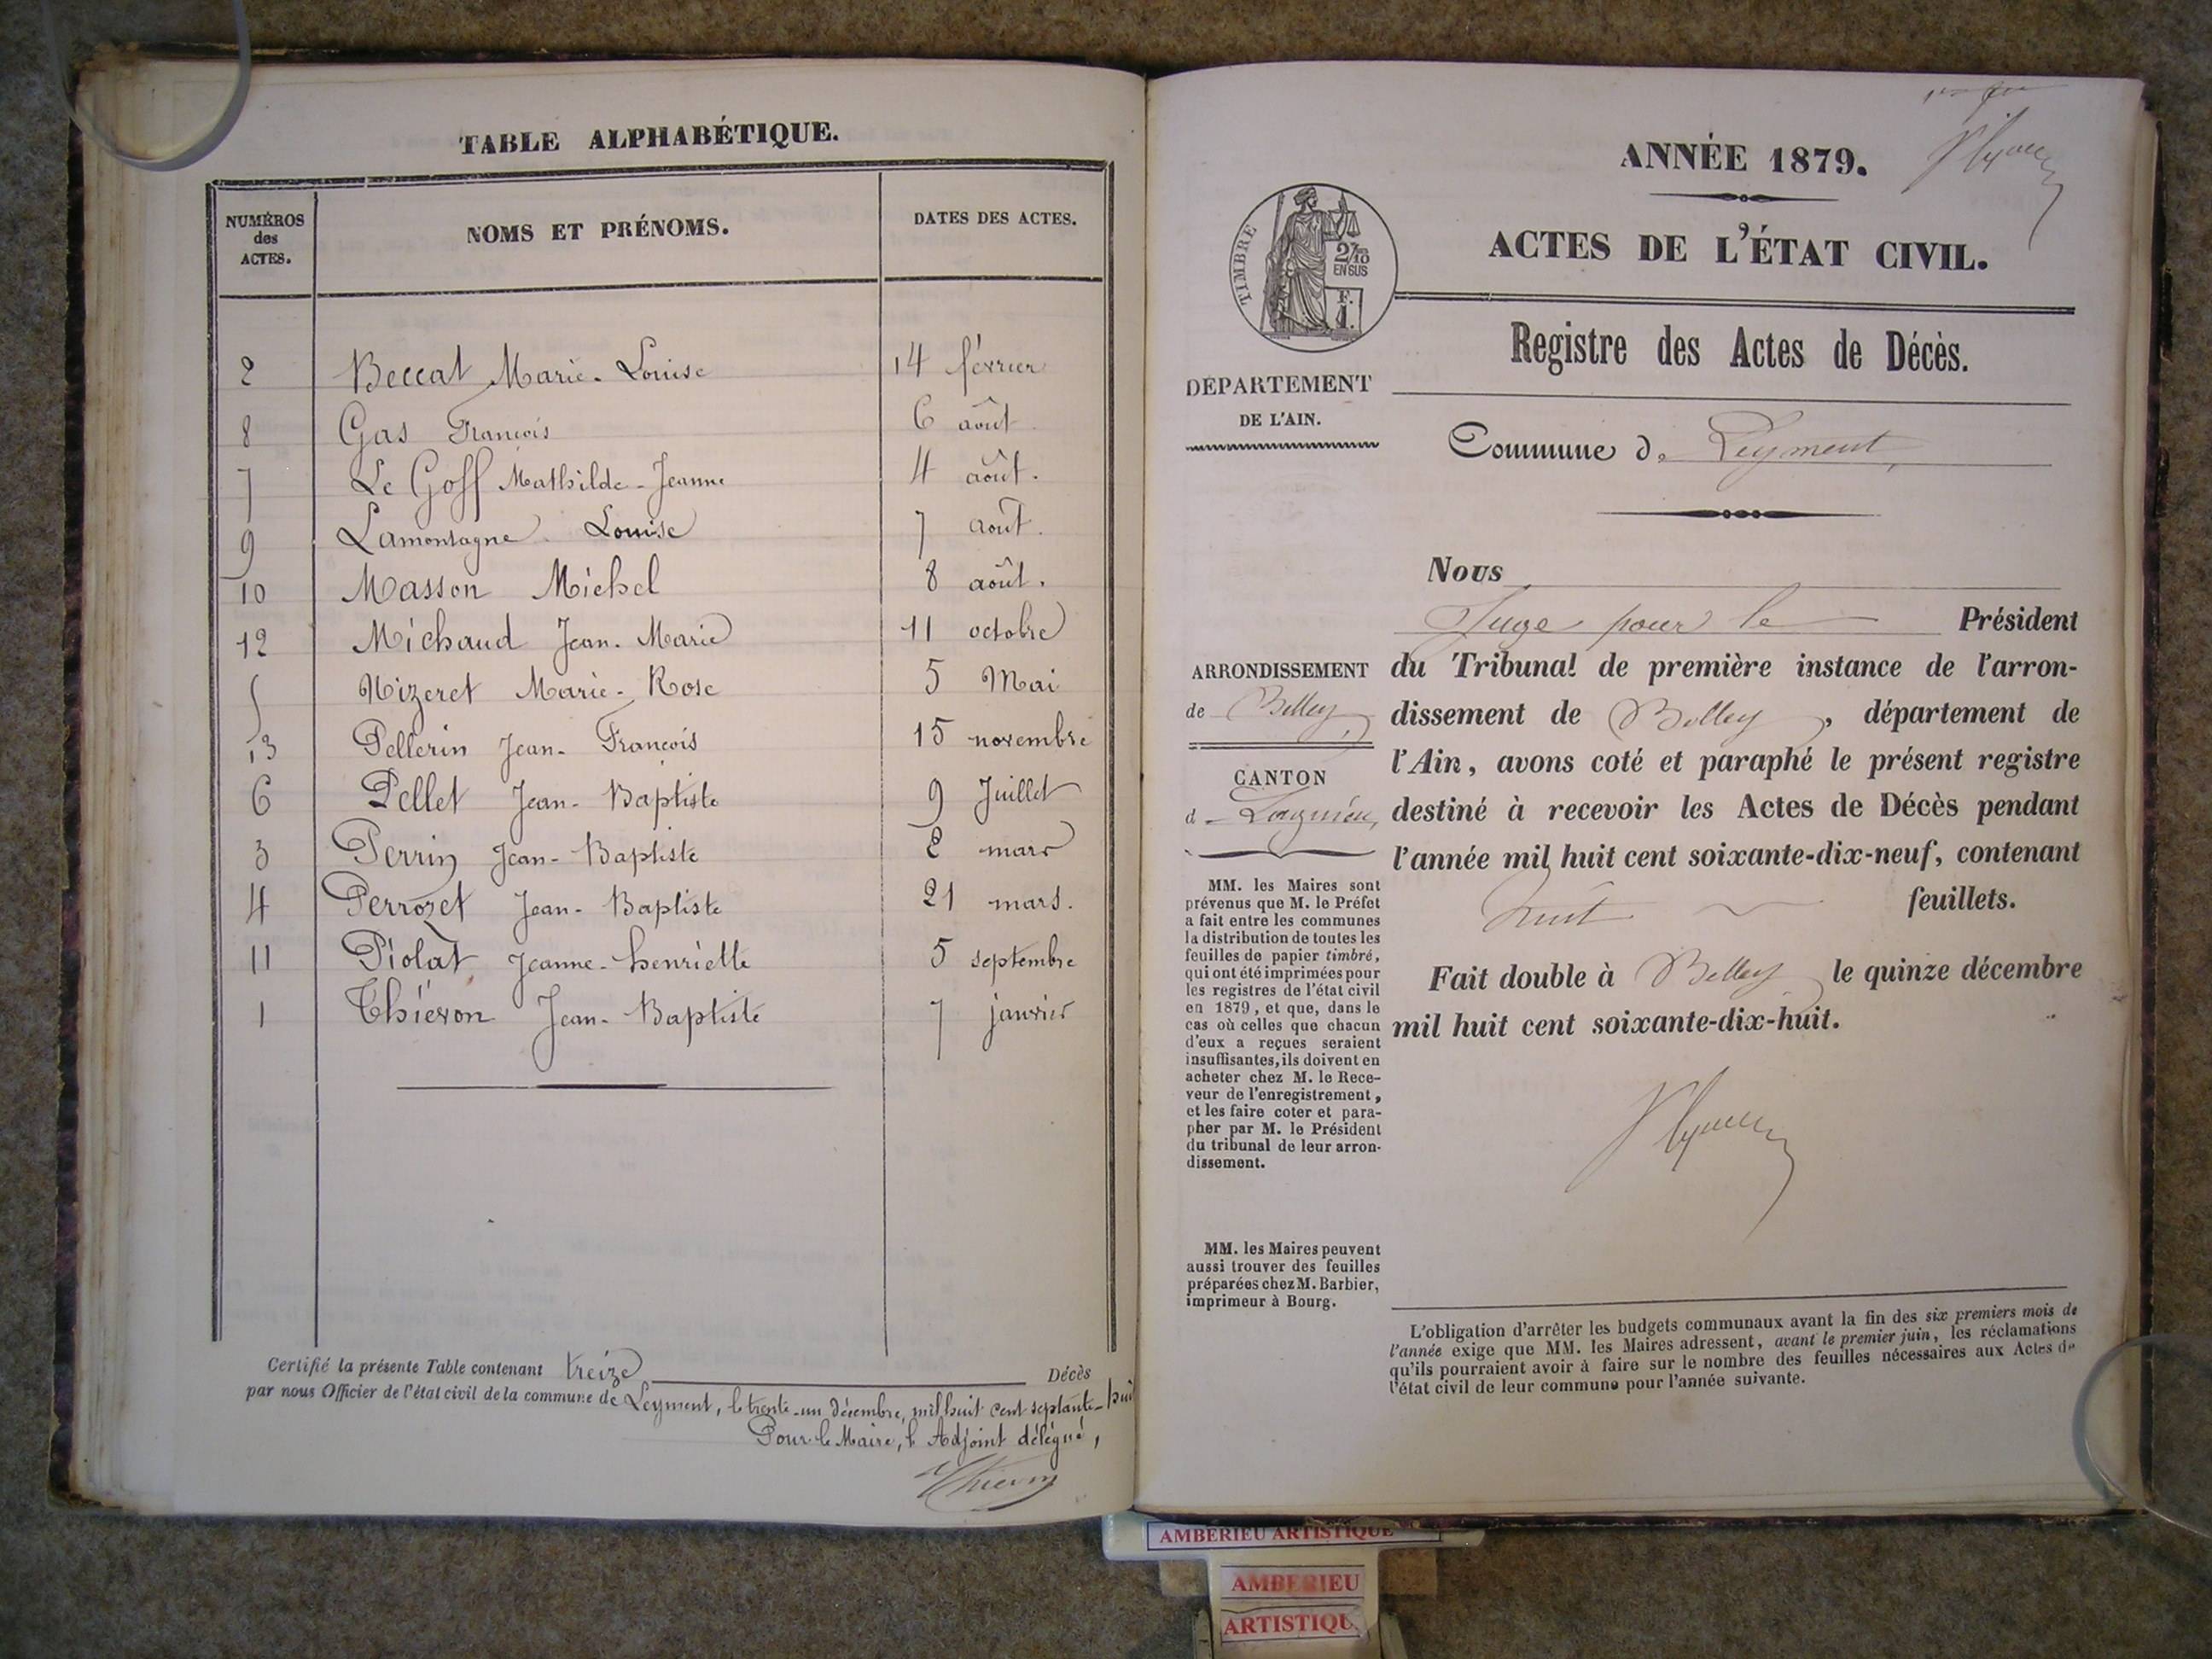 TABLE ALPHABÉTIQUE.
NUMÉROS des ACTES.
NOMS ET PRÉNOMS.
DATES DES ACTES.
2 Beccat Marie-Louise 14 février
8 Gas François 6 août
7 Le Goff Mathilde-Jeanne 4 août.
9 Lamontagne Louise 7 août.
10 Masson Michel 8 août.
12 Michaud Jean-Marie 11 octobre
5 Nizeret Marie-Rose 5 Mai
13 Pellerin Jean-François 15 novembre
6 Pellet Jean-Baptiste 9 Juillet
3 Perrin Jean-Baptiste 2 mars
4 Perrozet Jean-Baptiste 21 mars.
11 Piolat Jeanne-henriette 5 septembre
1 Thiévon Jean-Baptiste 7 janvier
Certifié la présente Table contenant treize Décès
par nous Officier de l'état civil de la commune de Leyment, le trente-un décembre, mil huit cent septante-huit
Pour le Maire, l'Adjoint délégué,
Thievon
ANNÉE 1879.
ACTES DE L'ÉTAT CIVIL.
TIMBRE
2/10
EN SUS
F.
1.
Registre des Actes de Décès.
DÉPARTEMENT
DE L'AIN.
Commune de Leyment,
Nous
Juge pour le Président
ARRONDISSEMENT
de Belley,
du Tribunal de première instance de l'arron-
dissement de Belley, département de
l'Ain, avons coté et paraphé le présent registre
destiné à recevoir les Actes de Décès pendant
l'année mil huit cent soixante-dix-neuf, contenant
huit feuillets.
Fait double à Belley le quinze décembre
mil huit cent soixante-dix-huit.
CANTON
d Lagnieu,
MM. les Maires sont
prévenus que M. le Préfet
a fait entre les communes
la distribution de toutes les
feuilles de papier timbré,
qui ont été imprimées pour
les registres de l'état civil
en 1879, et que, dans le
cas où celles que chacun
d'eux a reçues seraient
insuffisantes, ils doivent en
acheter chez M. le Rece-
veur de l'enregistrement,
et les faire coter et para-
pher par M. le Président
du tribunal de leur arron-
dissement.
MM. les Maires peuvent
aussi trouver des feuilles
préparées chez M. Barbier,
imprimeur à Bourg.
L'obligation d'arrêter les budgets communaux avant la fin des six premiers mois de
l'année exige que MM. les Maires adressent, avant le premier juin, les réclamations
qu'ils pourraient avoir à faire sur le nombre des feuilles nécessaires aux Actes de
l'état civil de leur commune pour l'année suivante.
AMBERIEU ARTISTIQUE
AMBERIEU
ARTISTIQU